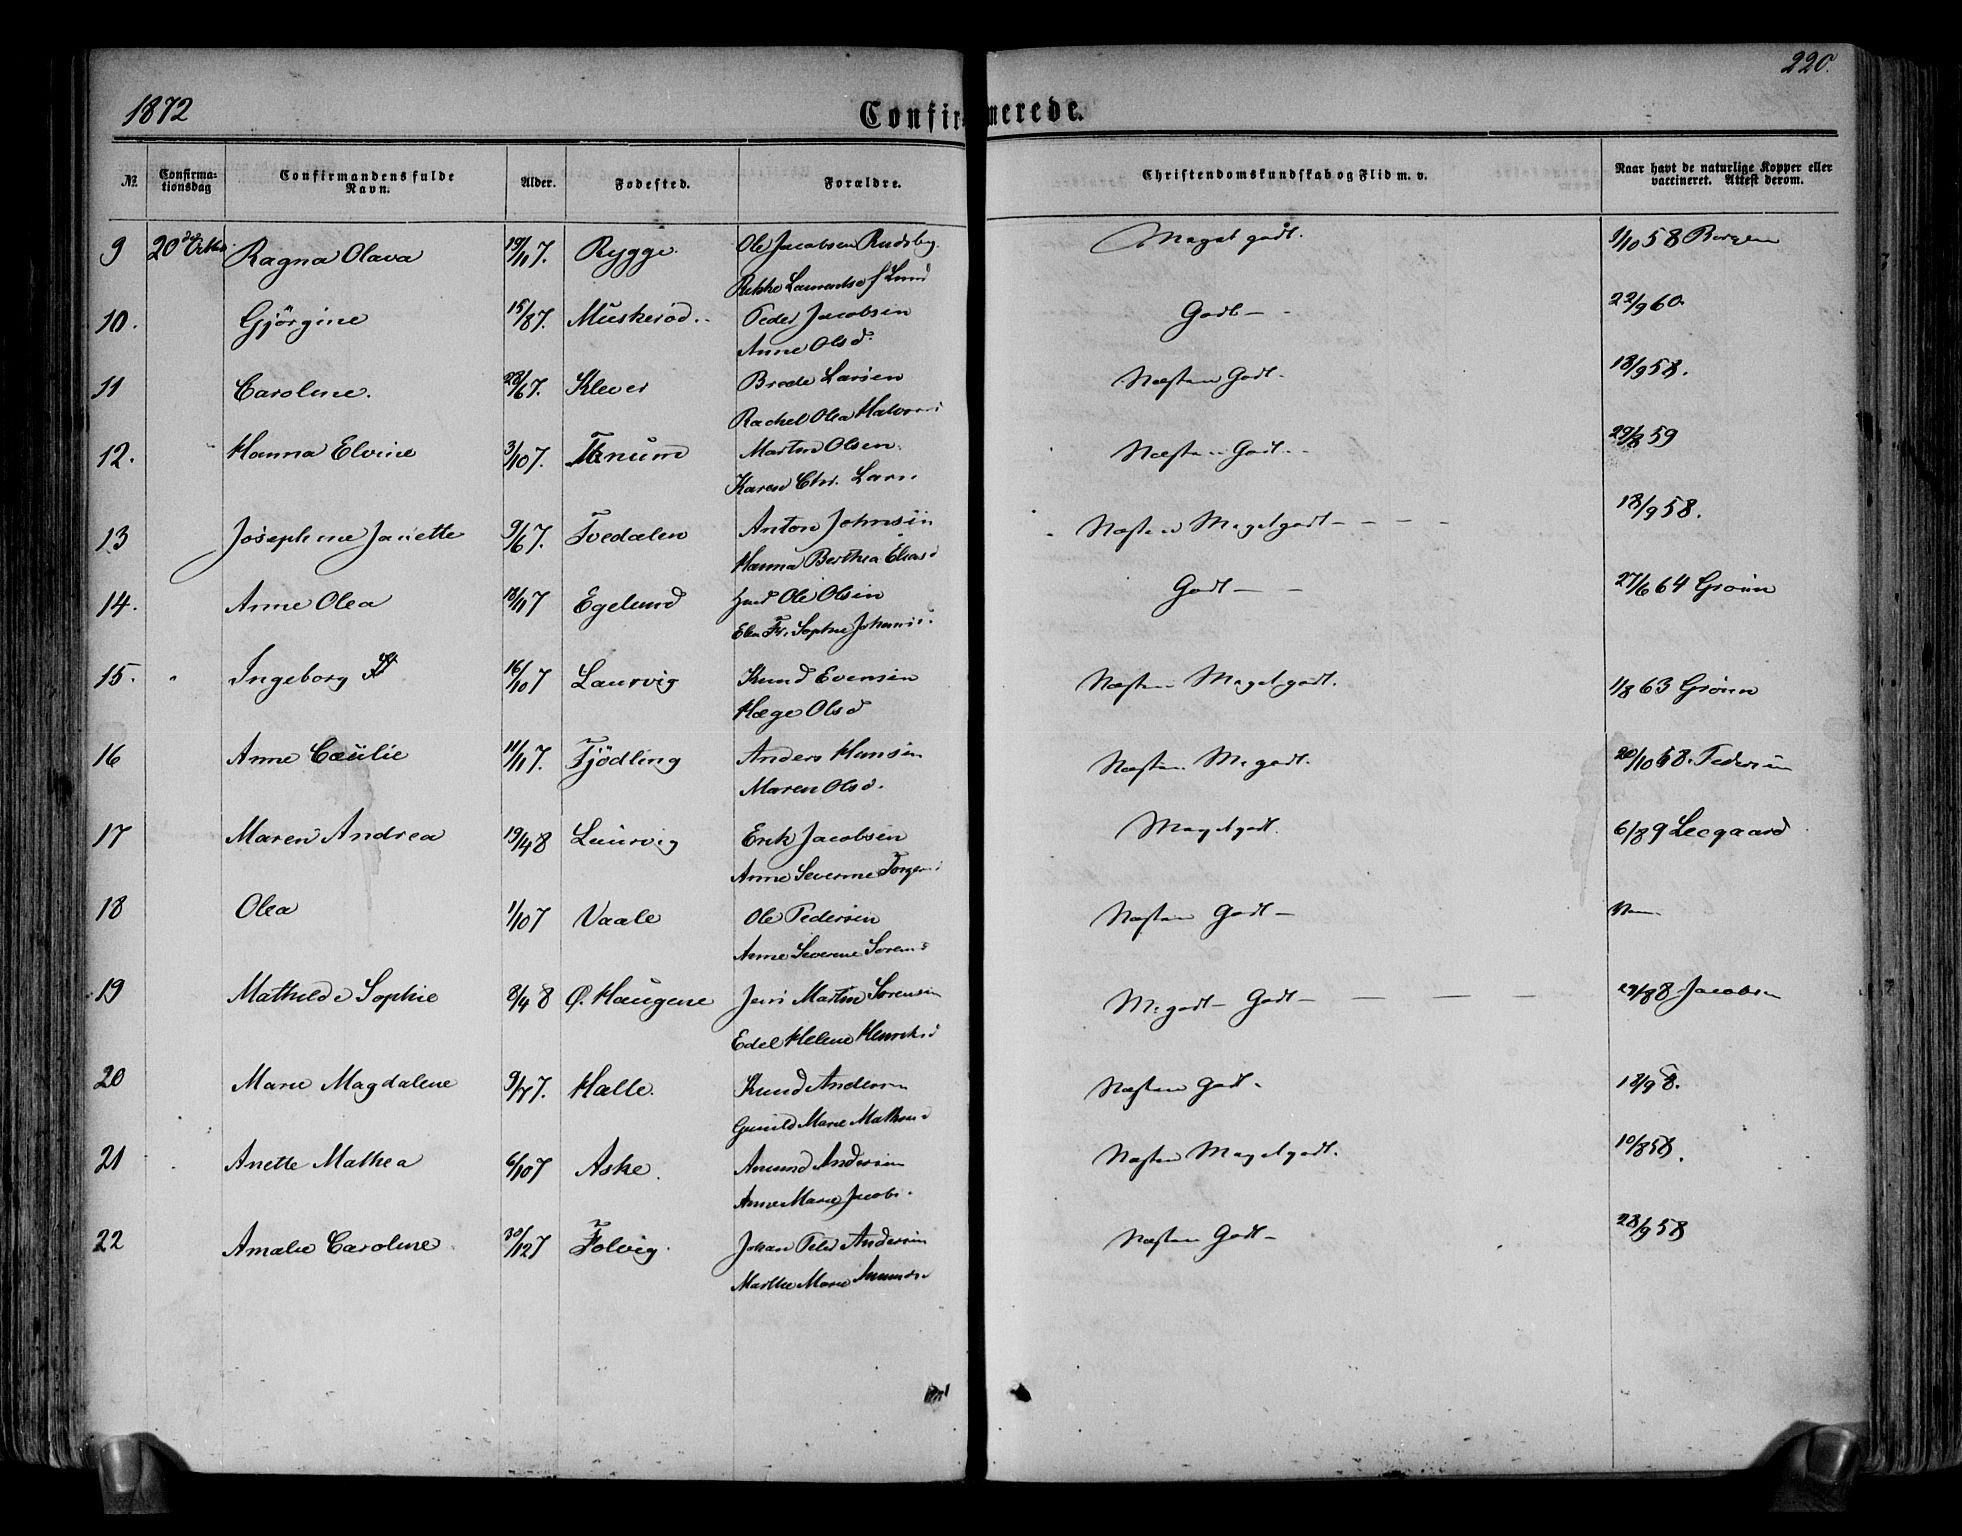 1872
Confirmerede.
220.
№ Confirmationsdag Confirmandens fulde Navn. Alder. Fødested. Forældre. Christendomskundskab og Flid m. v. Naar havt de naturlige Kopper eller vaccineret. Attest derom.
9 20de Octbr. Ragna Olava 19/11 7. Rygge. Ole Jacobsen Meget godt. 1/10 58
Lund
10. Gjörgine 15/8 7. Muskeröd Peder Jacobsen Godt 22/9 60.
Anne Olsd.
11 Caroline. 23/6 7. Klever Brede Larsen Næsten Godt. 18/9 58.
Rachel Olea Halvors
12. Hanna Elvine 3/10 7. Martin Olsen. Næsten Godt 29/8 59
Karen Chr. Lars
13 Josephine Janette 9/6 7. Tvedalen Anton Johnsen Næsten Meget godt 18/9 58.
Hanna Berthea Eliasd
14. Anne Olea 18/11 7 Egelund Ole Olsen Godt 27/6 64 Grönn
Elen Fr. Sophie Johanns.
15. " Ingeborg 16/10 7 Laurvig Knud Evensen Næsten Meget godt. 1/8 63 Grönn
Hæge Olsd
16 Anne Cæcilie 11/11 7. Fjödling Anders Hansen Næsten M. godt. 20/10 58. Pedersen
Maren Olsd.
17 Maren Andrea 19/4 8 Laurvig Erik Jacobsen Meget godt. 6/8 9 Leegaard
Anne Severine Torgers
18 Olea 1/10 7 Vaale Ole Pedersen Næsten Godt
Anne Severine Sorens
19 Mathilde Sophie 8/4 8 Ø. Haugene Jens Martin Sorensen M. godt Godt 29/8 8 Jacobsen
Edel Helene Henriksd
20 Marie Magdalene 9/7 7. Halle. Knud Andersen Næsten Godt 18/9 8.
Gunild Marie Mathisd
21 Anette Mathea 6/10 7 Aske. Amund Andersen Næsten Meget godt. 10/8 58.
Anne Marie Jacobs.
22 Amalie Caroline 30/12 7 Folvig. Johan Peter Andersen Næsten Godt 28/9 58
Marthe Marie Amundsd